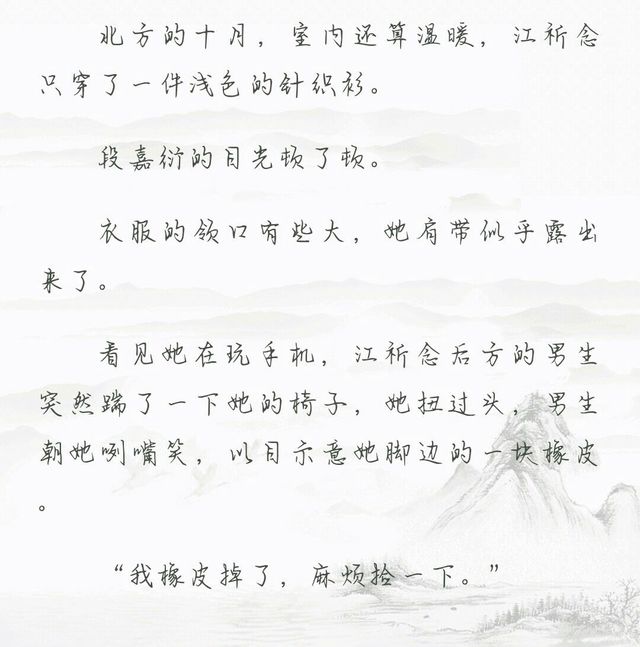 北方的十月，室内还算温暖，江祈念
只穿了一件浅色的针织衫。
段嘉衍的目光顿了顿。
衣服的领口有些大，她肩带似乎露出
来了。
看见她在玩手机，江祈念后方的男生
突然踹了一下她的椅子，她扭过头，男生
朝她咧嘴笑，以目示意她脚边的一块橡皮
。
“我橡皮掉了，麻烦捡一下。”